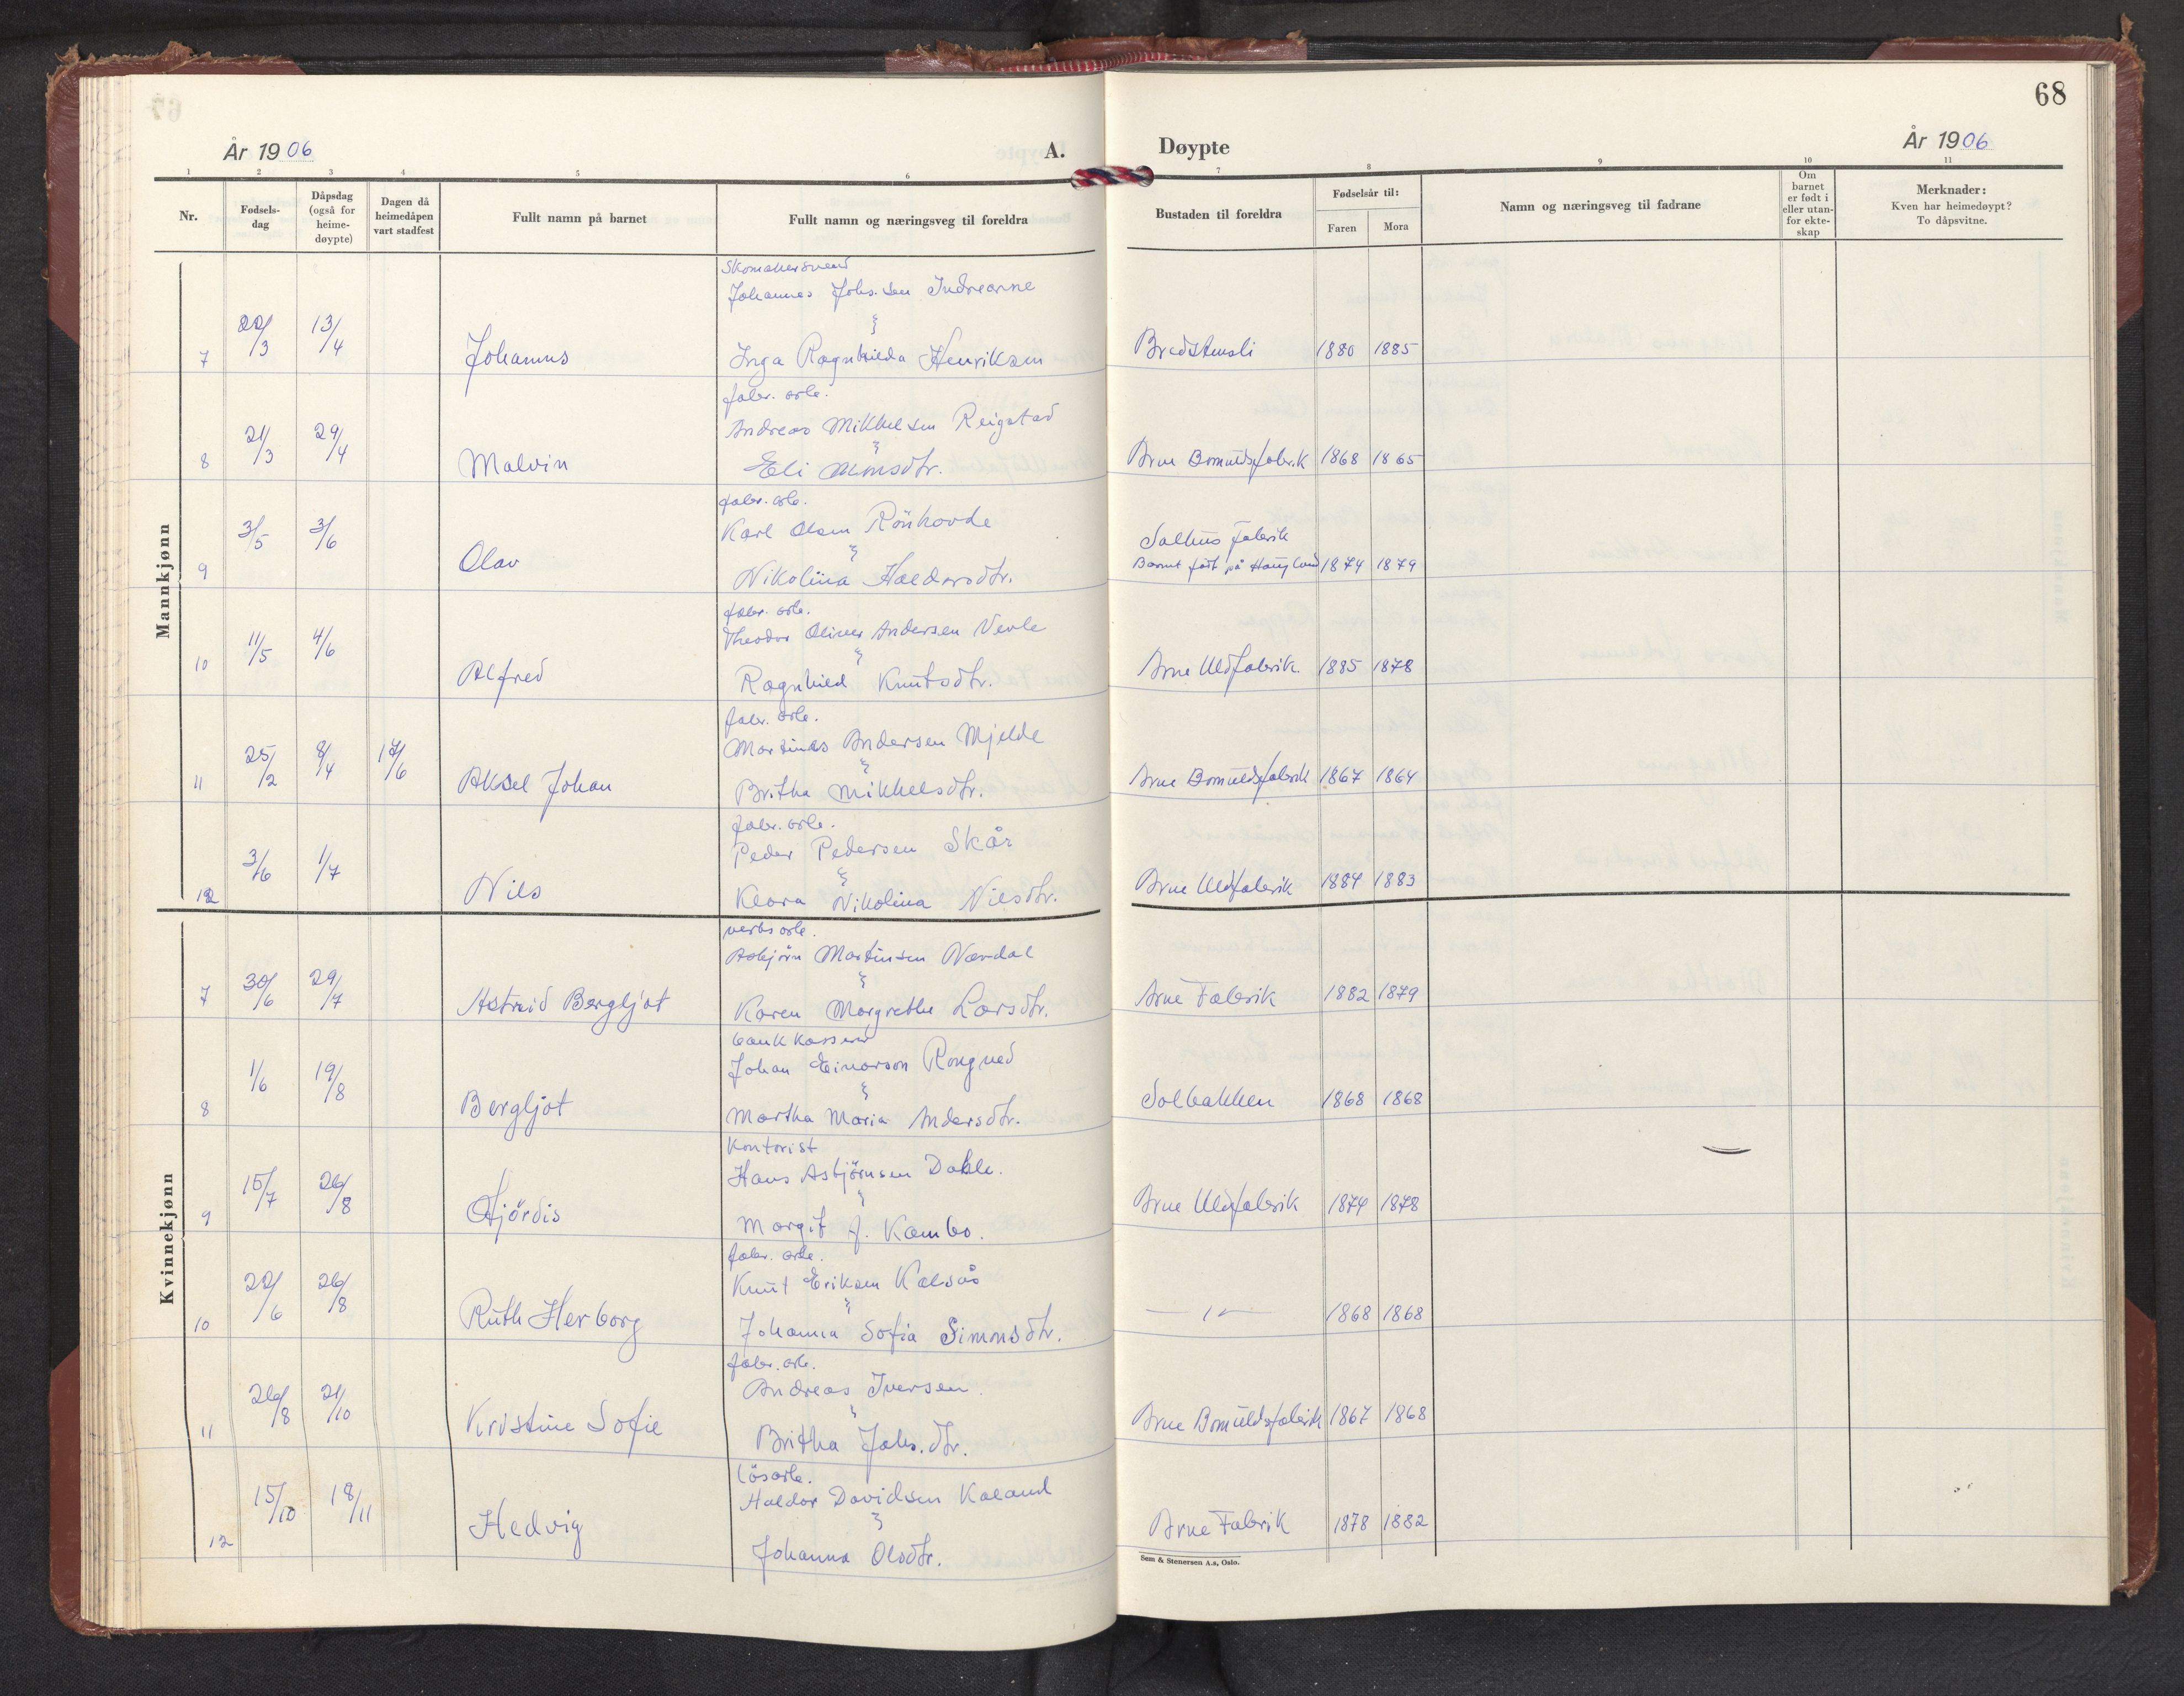 68
År 1906
A.
Døypte
År 1906
1 2 3 4 5 6 7 8 9 10 11
Nr.
Fødsels-
dag
Dåpsdag
(også for
heime-
døypte)
Dagen då
heimedåpen
vart stadfest
Fullt namn på barnet
Fullt namn og næringsveg til foreldra
Bustaden til foreldra
Fødselsår til:
Faren
Mora
Namn og næringsveg til fadrane
Om
barnet
er født i
eller utan-
for ekte-
skap
Merknader:
Kven har heimedøypt?
To dåpsvitne.
Mannkjønn
Skomakersvend
Johannes Johs.sen Indrearne
7 22/3 13/4 Johannes Inga Ragnhilda Henriksen 1880 1885
fabr. arb.
Andreas Mikkelsen Reigstad
8 21/3 29/4 Malvin Eli Monsdtr. Arne Bomuldsfabrik 1868 1865
fabr. arb.
Karl Olsen Rönhovde
Salhus fabrik
9 3/5 3/6 Olav Nikolina Haldorsdtr. Barnet född på Haugland 1874 1879
fabr. arb.
Theodor Oliver Andersen Nevle
10 11/5 4/6 Alfred Ragnhild Knutsdtr. Arne Uldfabrik. 1885 1878
fabr. arb.
Martinus Andersen Mjelde
11 25/2 8/4 17/6 Aksel Johan Britha Mikkelsdtr. Arne Bomuldsfabrik 1867 1864
fabr. arb.
Peder Pedersen Skår
12 3/6 1/7 Nils Klara Nikolina Nilsdtr. Arne Uldfabrik 1884 1883
Kvinnekjønn
verks arb.
Asbjörn Martinsen Nordal
7 30/6 29/7 Astrid Bergljot Karen Margrethe Larsdtr. Arne Fabrik 1882 1879
bankkasserer
Johan Einarson Rongved
8 1/6 19/8 Bergljot Martha Maria Andersdtr. Solbakken 1868 1868
Kontorist
Hans Asbjörnsen Dahle.
9 15/7 26/8 Hjördis Margit J. Kambo. Arne Uldfabrik 1874 1878
fabr. arb.
Knut Eriksen Kalsås
10 22/6 26/8 Ruth Herborg Johanna Sofia Simonsdtr. —"— 1868 1868
fabr. arb.
Andreas Iversen
11 26/8 21/10 Kristine Sofie Britha Johs.dtr. Arne Bomuldsfabrik 1867 1868
Lösarb.
Haldor Davidsen Kaland
12 15/10 18/11 Hedvig Johanna Olsdtr. Arne Fabrik 1878 1882
Sem & Stenersen A.s, Oslo.